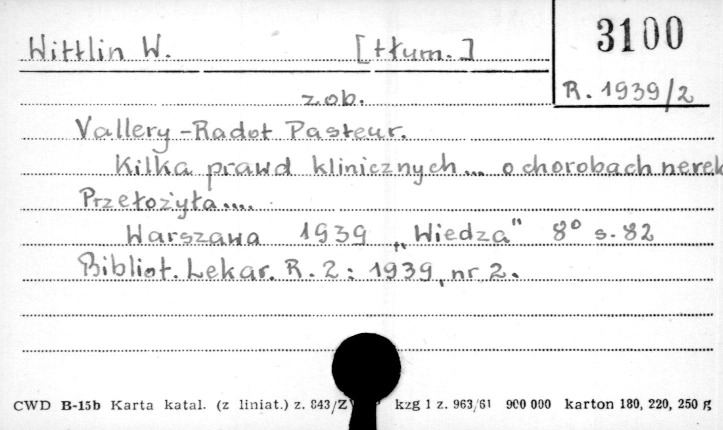 Wittlin W. [tłum.]
3100
R. 1939/2
zob.
Vallery-Radot Pasteur.
Kilka prawd klinicznych... o chorobach nerek
Przełożyła....
Warszawa 1939 „Wiedza" 8° s. 82
Bibliot. Lekar. R. 2: 1939, nr 2.
CWD B-15b Karta katal. (z liniat.) z. 843/Z kzg 1 z. 963/61 900 000 karton 180, 220, 250 g